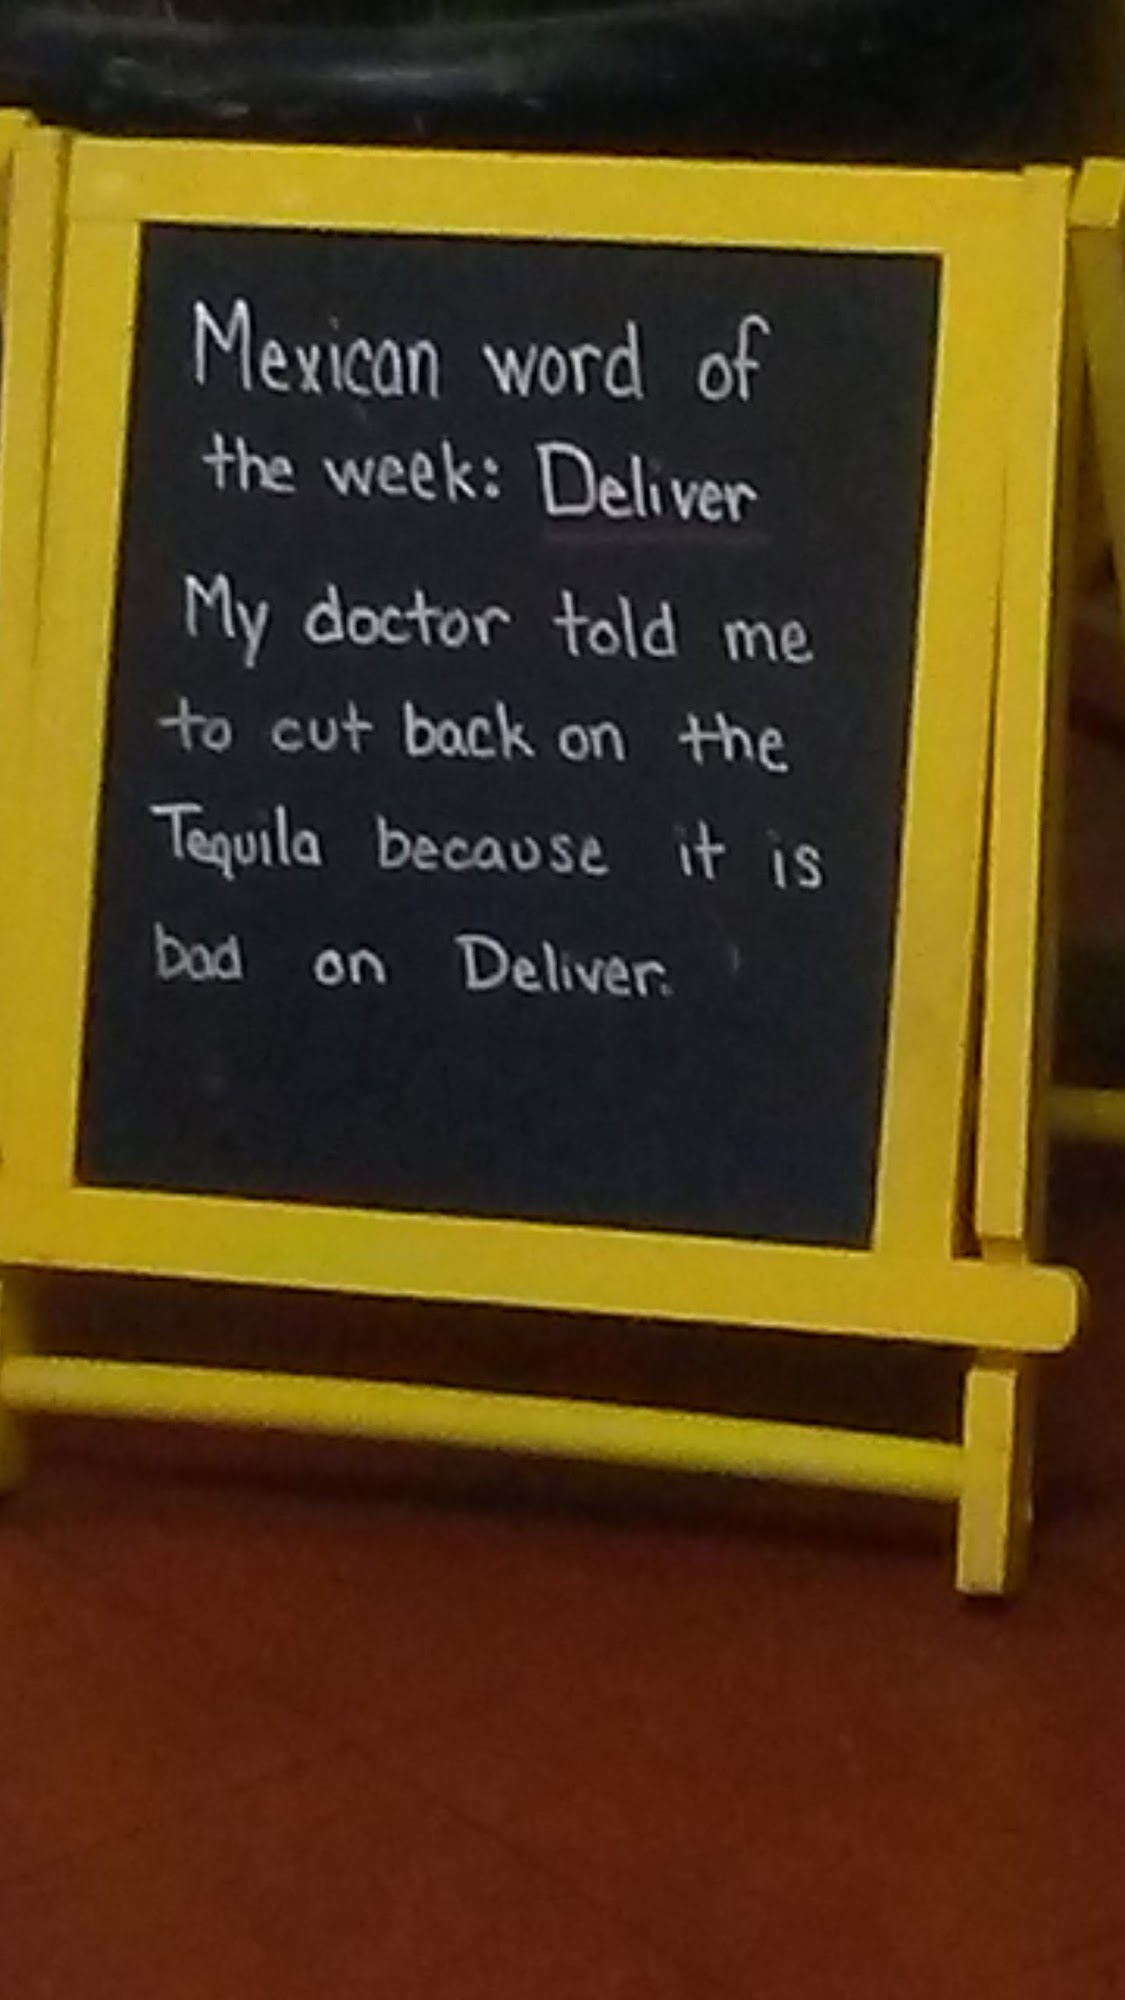 Mexican word of
the week: Deliver
My doctor told me
to cut back on the
Tequila because it is
bad on Deliver.